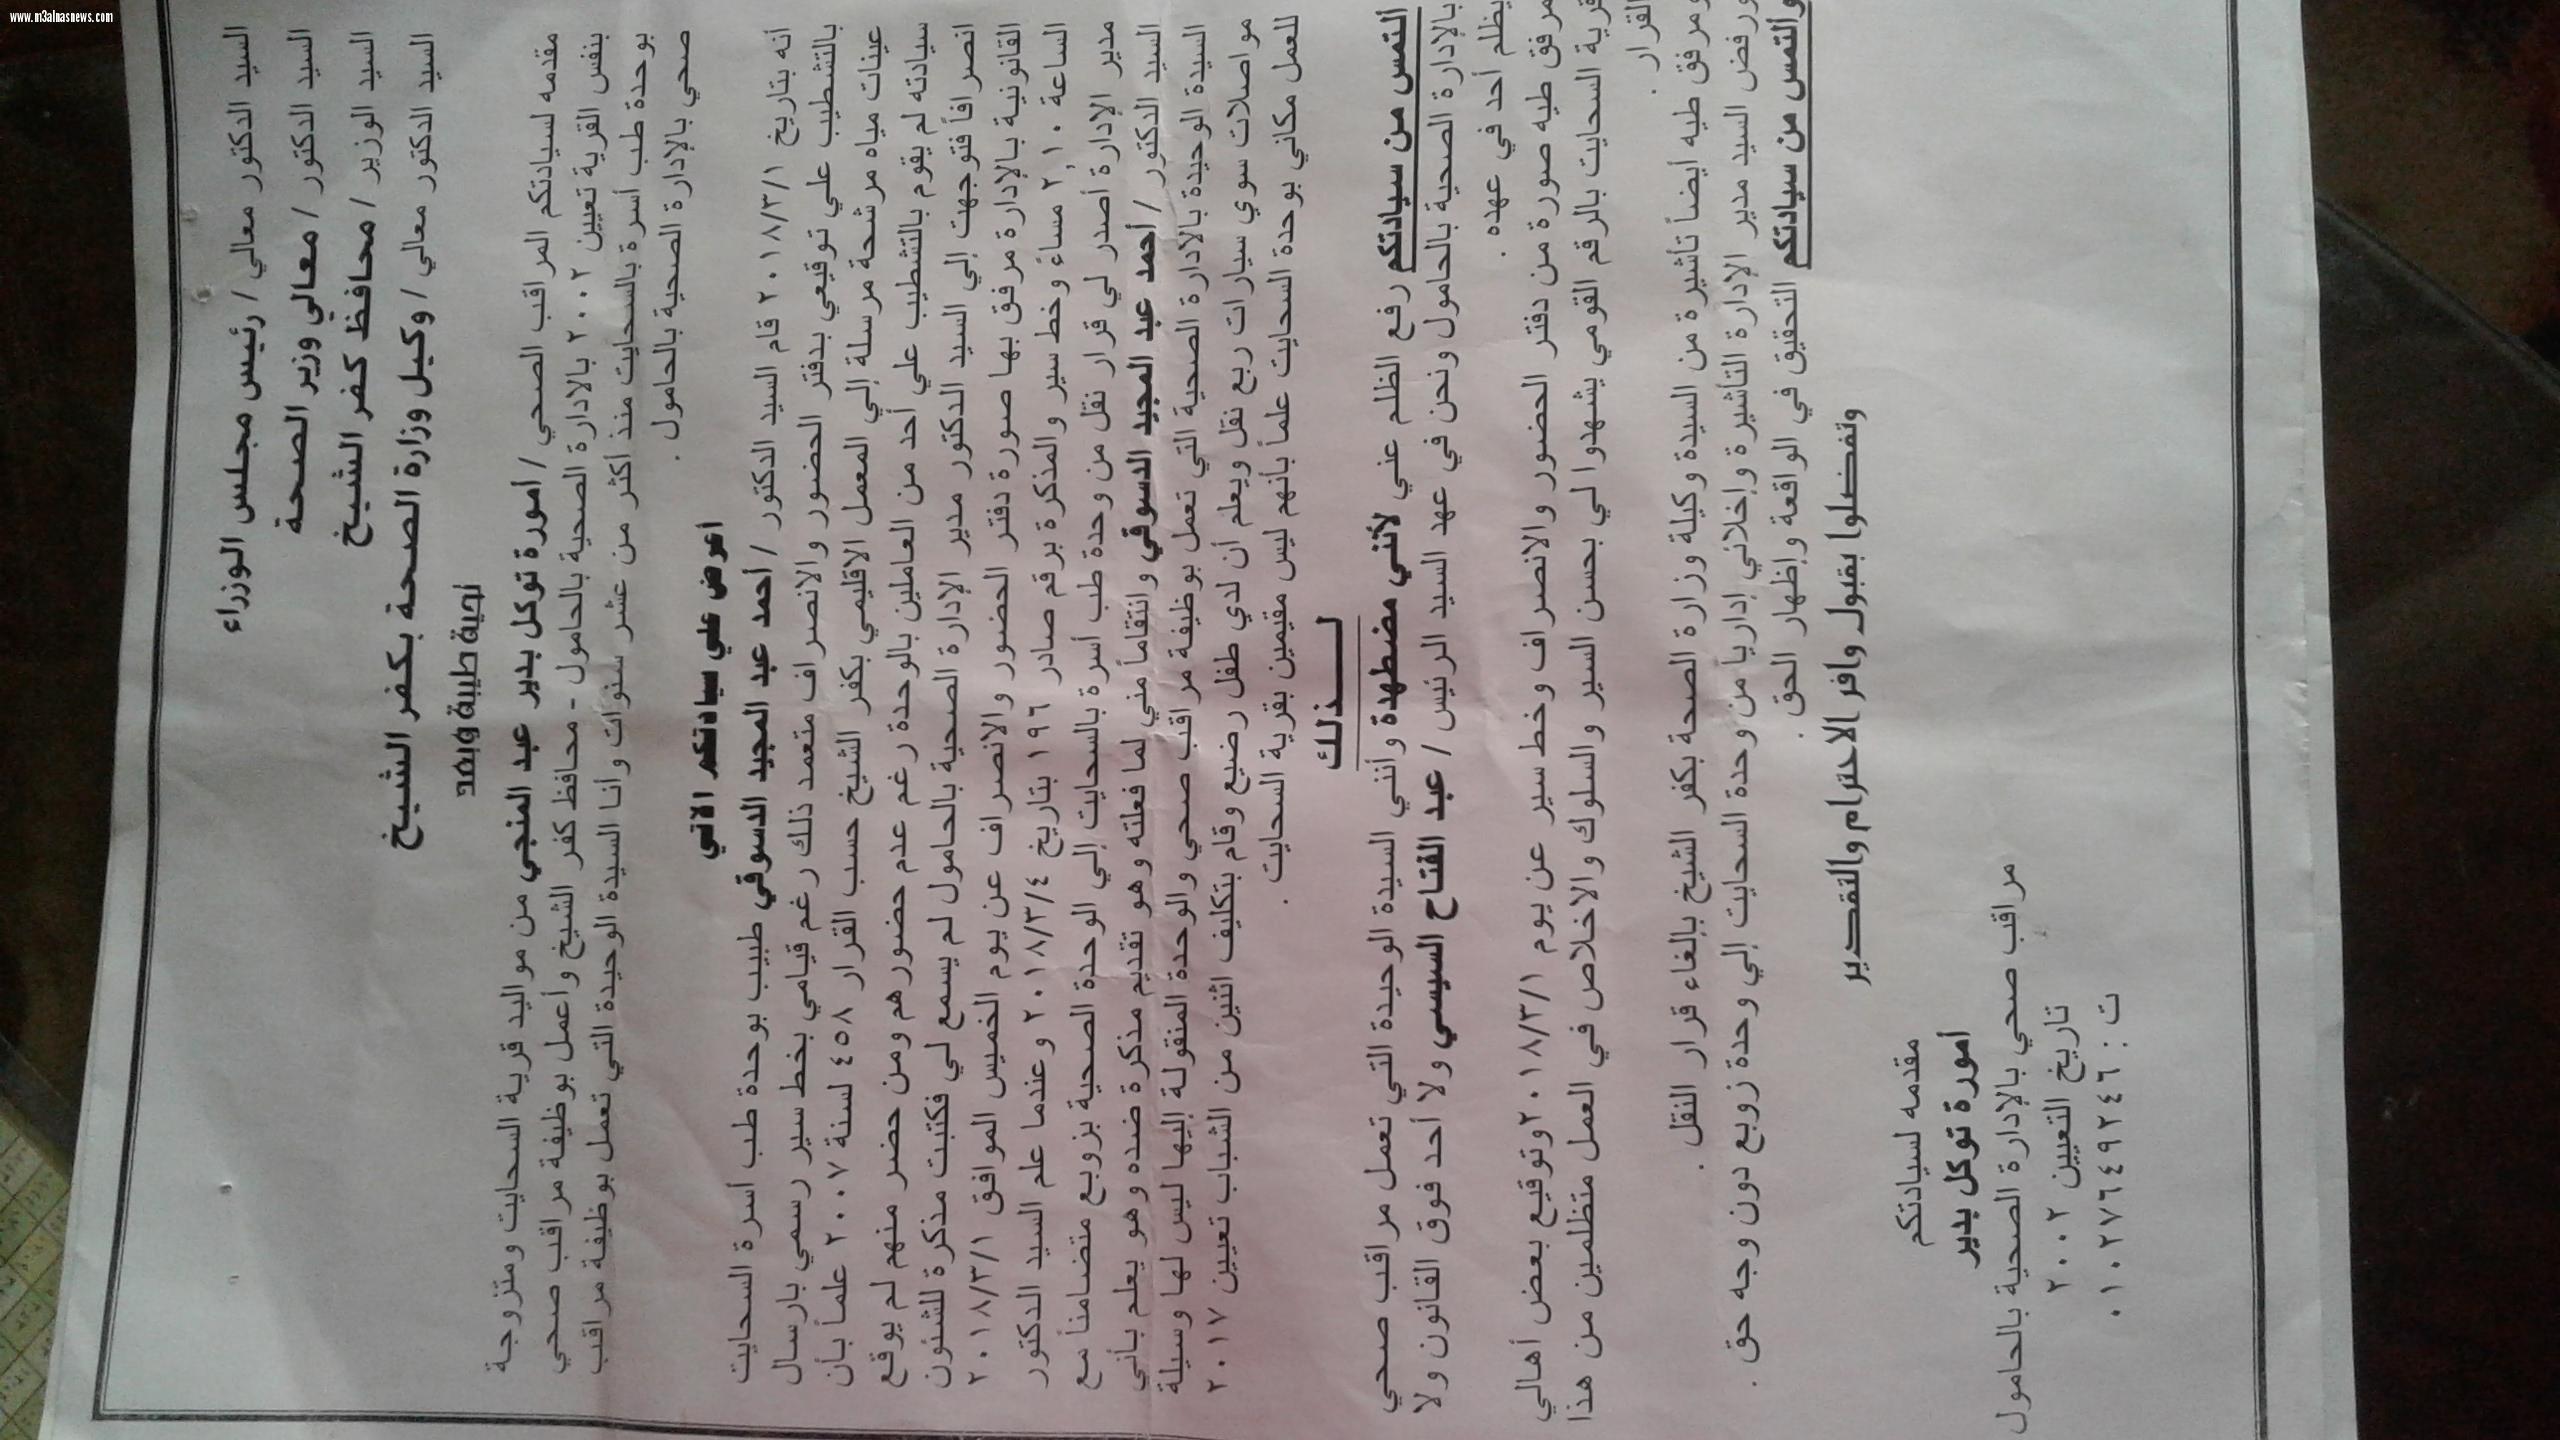 www.m3alnasnews.com
السيد الدكتور معالي / رئيس مجلس الوزراء
السيد الدكتور / معالي وزير الصحة
السيد الوزير / محافظ كفر الشيخ
السيد الدكتور معالي / وكيل وزارة الصحة بكفر الشيخ
تحية طيبة وبعد
مقدمه لسيادتكم المراقب الصحي / أمورة توكل بدير عبد المنجي من مواليد قرية السحايت ومتزوجة
بنفس القرية تعيين ٢٠٠٢ بالادارة الصحية بالحامول - محافظ كفر الشيخ وأعمل بوظيفة مراقب صحي
بوحدة طب أسرة بالسحايت منذ أكثر من عشر سنوات وأنا السيدة الوحيدة التي تعمل بوظيفة مراقب
صحي بالإدارة الصحية بالحامول .
أعرض علي سيادتكم الاتي
أنه بتاريخ ٢٠١٨/٣/١ قام السيد الدكتور / أحمد عبد المجيد الدسوقي طبيب بوحدة طب أسرة السحايت
بالتشطيب علي توقيعي بدفتر الحضور والانصراف متعمد ذلك رغم قيامي بخط سير رسمي بارسال
عينات مياه مرشحة مرسلة إلي المعمل الاقليمي بكفر الشيخ حسب القرار ٤٥٨ لسنة ٢٠٠٧ علماً بأن
سيادته لم يقوم بالتشطيب علي أحد من العاملين بالوحدة رغم عدم حضورهم ومن حضر منهم لم يوقع
انصرافاً فتوجهت إلي السيد الدكتور مدير الإدارة الصحية بالحامول لم يسمع لي فكتبت مذكرة للشئون
القانونية بالإدارة مرفق بها صورة دفتر الحضور والانصراف عن يوم الخميس الموافق ٢٠١٨/٣/١
الساعة ٢,١٠ مساءً وخط سير والمذكرة برقم صادر ١٩٦ بتاريخ ٢٠١٨/٣/٤ وعندما علم السيد الدكتور
مدير الإدارة أصدر لي قرار نقل من وحدة طب أسرة بالسحايت إلي الوحدة الصحية بزوبع متضامناً مع
السيد الدكتور / أحمد عبد المجيد الدسوقي وانتقاماً مني لما فعلته وهو تقديم مذكرة ضده وهو يعلم بأني
السيدة الوحيدة بالادارة الصحية التي تعمل بوظيفة مراقب صحي والوحدة المنقولة إليها ليس لها وسيلة
مواصلات سوي سيارات ربع نقل ويعلم أن لدي طفل رضيع وقام بتكليف اثنين من الشباب تعيين ٢٠١٧
للعمل مكاني بوحدة السحايت علماً بأنهم ليس مقيمين بقرية السحايت .
لـــــذلك
التمس من سيادتكم رفع الظلم عني لأنني مضطهدة وأنني السيدة الوحيدة التي تعمل مراقب صحي
بالإدارة الصحية بالحامول ونحن في عهد السيد الرئيس / عبد الفتاح السيسي ولا أحد فوق القانون ولا
يظلم أحد في عهده .
مرفق طيه صورة من دفتر الحضور والانصراف وخط سير عن يوم ٢٠١٨/٣/١ وتوقيع بعض أهالي
قرية السحايت بالرقم القومي يشهدوا لي بحسن السير والسلوك والاخلاص في العمل متظلمين من هذا
القرار .
ومرفق طيه أيضاً تأشيرة من السيدة وكيلة وزارة الصحة بكفر الشيخ بإلغاء قرار النقل .
ورفض السيد مدير الإدارة التأشيرة وإخلاني إدارياً من وحدة السحايت إلي وحدة زوبع دون وجه حق .
والتمس من سيادتكم التحقيق في الواقعة وإظهار الحق .
وتفضلوا بقبول وافر الاحترام والتقدير
مقدمه لسيادتكم
أمورة توكل بدير
مراقب صحي بالإدارة الصحية بالحامول
تاريخ التعيين ٢٠٠٢
ت : ٠١٠٢٧٦٤٩٢٤٦